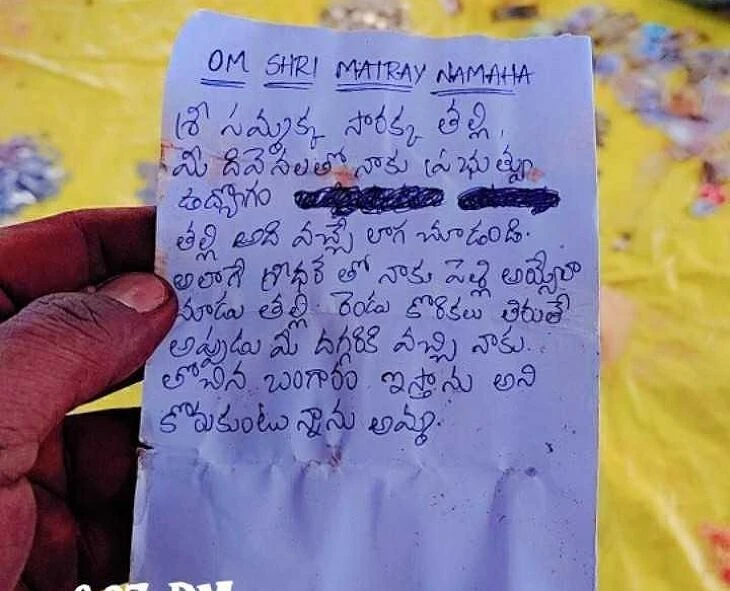 OM SHRI MATRAY NAMAHA
శ్రీ సమ్మక్క సారక్క తల్లి,
మీ దివెనలతో నాకు ప్రభుత్వ
ఉద్యోగం
తల్లి అది వచ్చే లాగ చూడండి.
అలాగే తో నాకు పెళ్లి అయ్యేలా
చూడు తల్లి రెండు కోరికలు తిరుతే
అప్పుడు మీ దగ్గరికి వచ్చి నాకు.
తోచిన బంగారం ఇస్తాను అని
కోరుకుంటున్నాను అమ్మ.